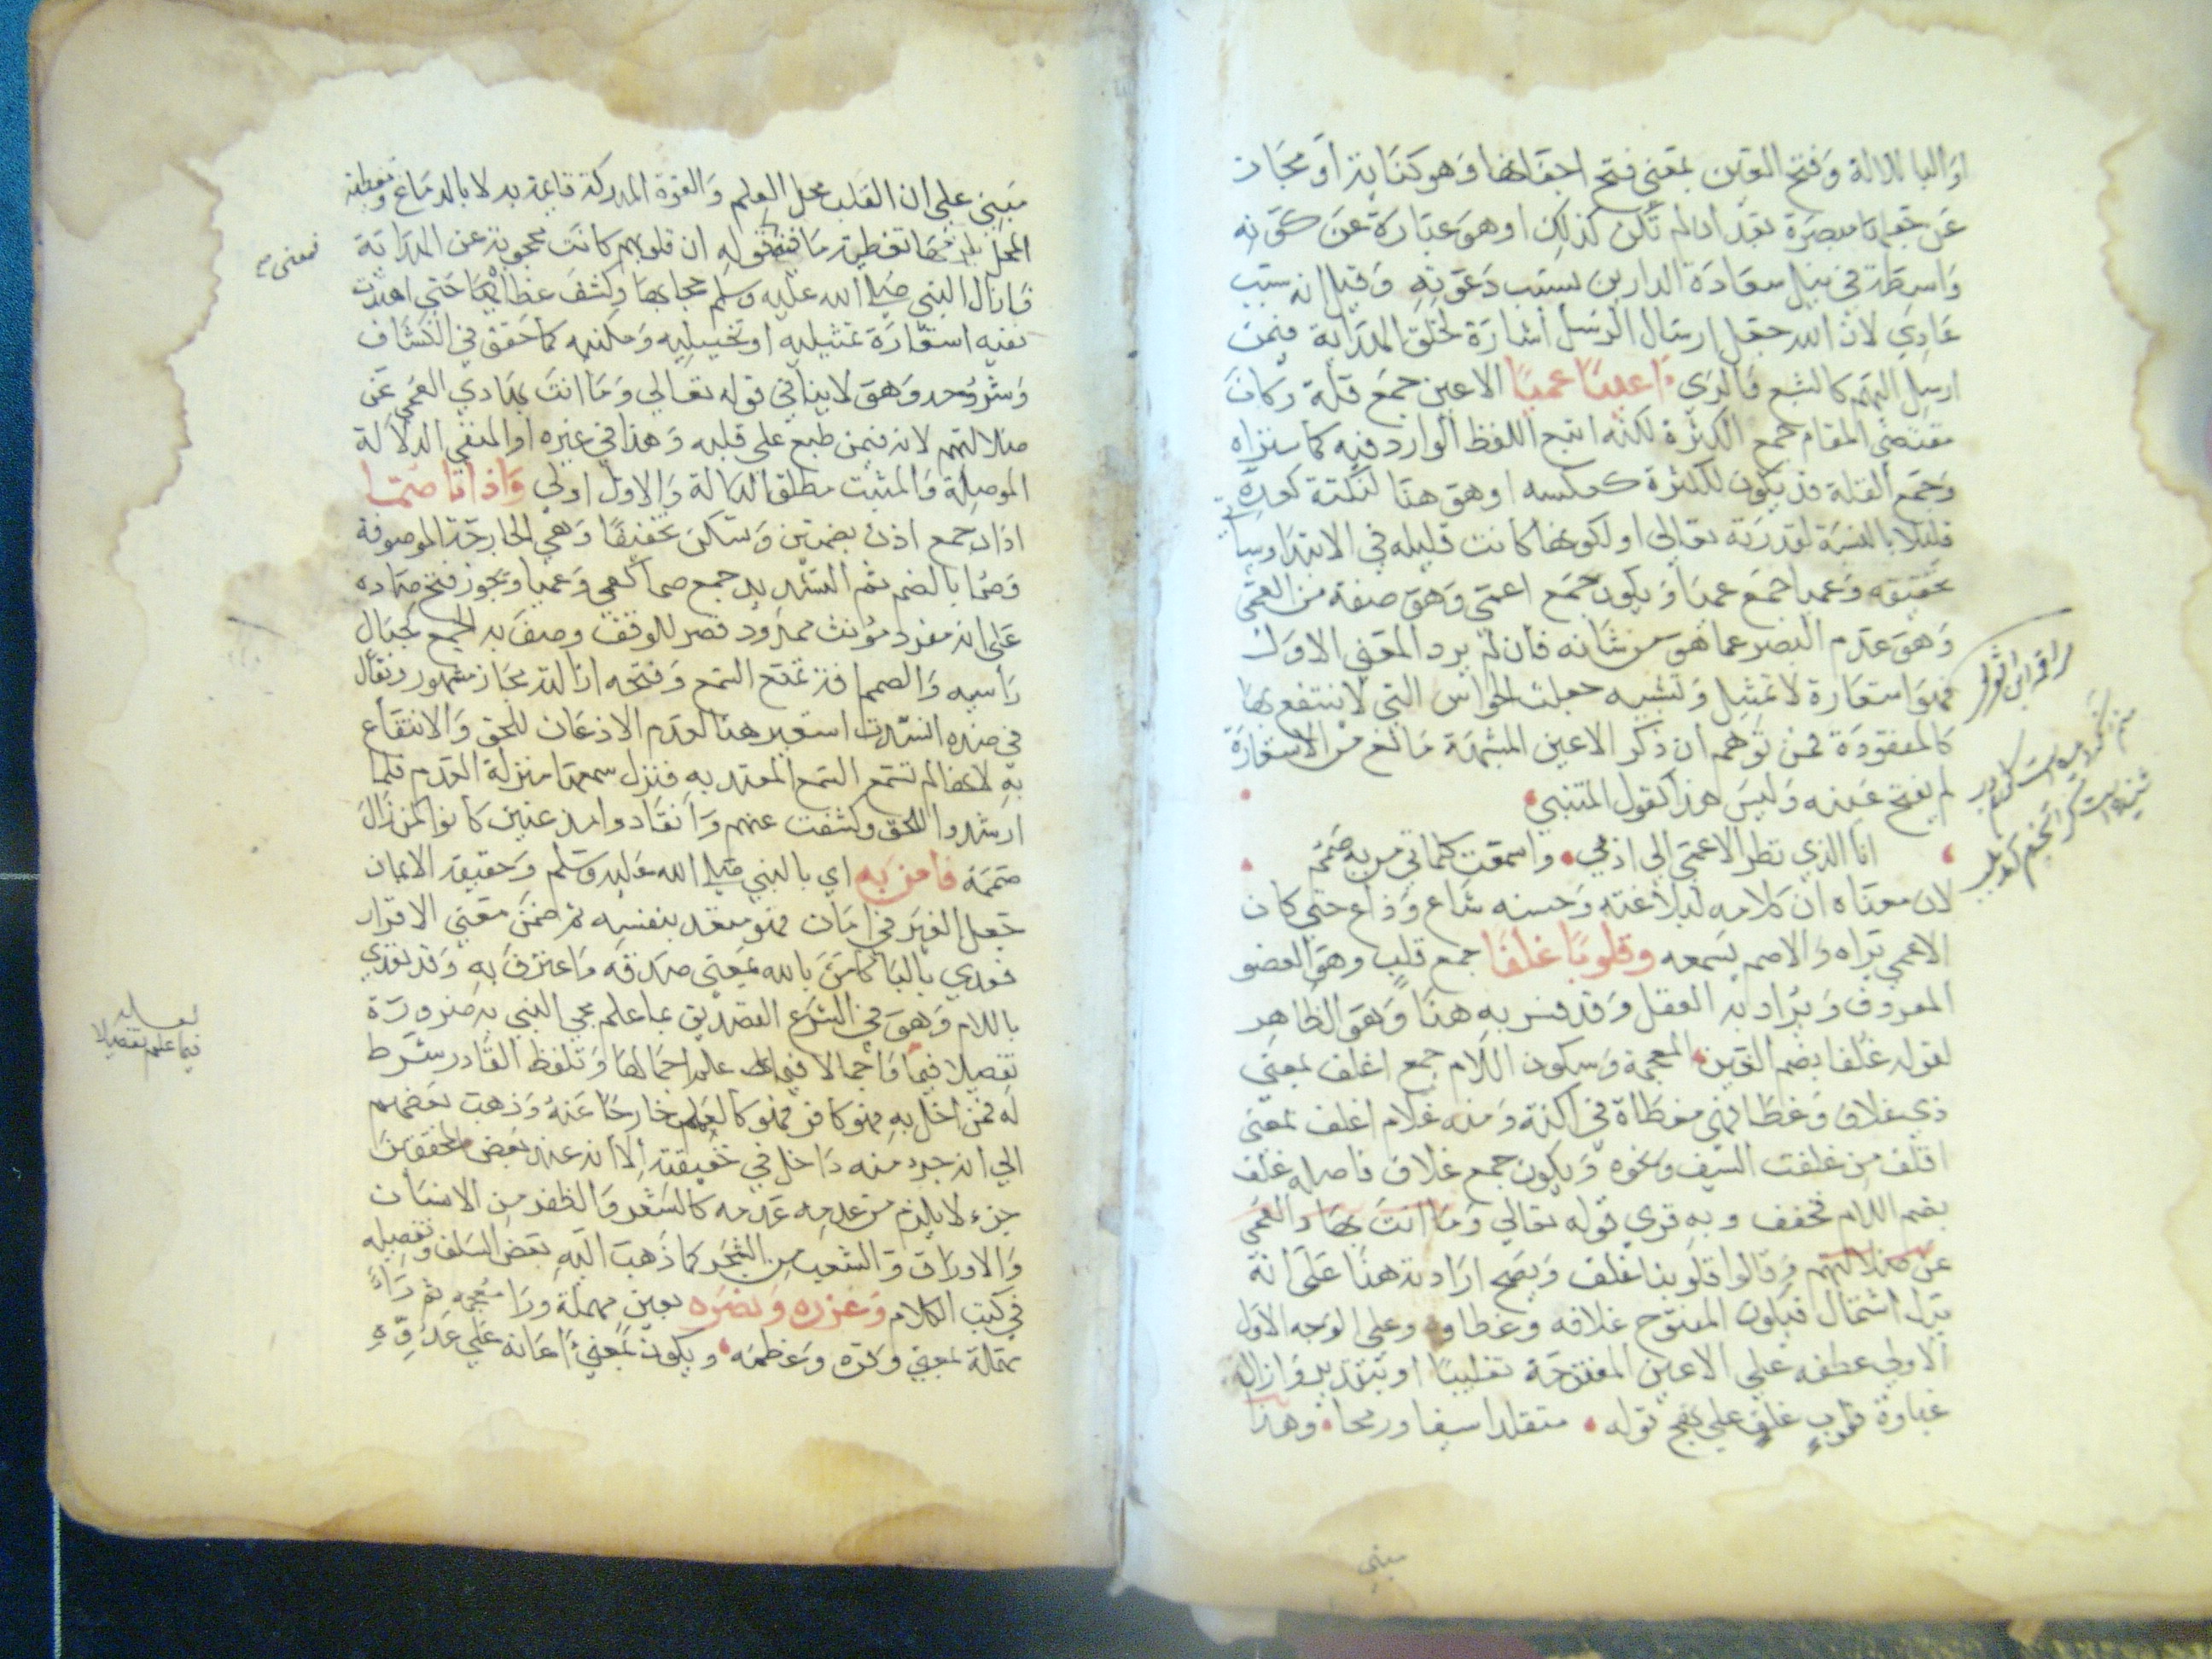 او البا للالة وفتح العين بمعنى فتح اجفانها وهو كناية او مجاز
عن جعلها مبصرة بعد ان لم تكن كذلك او هو عبارة عن كونه
واسطة في نيل سعادة الدارين بسبب دعوته وقيل انه سبب
عادي لان الله جعل ارسال الرسل اشارة لخلق الهداية فيمن
ارسل اليهم كالشبع والري اعينا عميا الاعين جمع قلة وكان
مقتضى المقام جمع الكثرة لكنه اتبع اللفظ الوارد فيه كما سنراه
وجمع القلة قد يكون للكثرة كعكسه او هو هنا لنكتة
قليلا بالنسبة لقدرته تعالى او لكونها كانت قليله في الابتدا
تحقيقه وعميا جمع عميا ويكون جمع اعمى وهو صفة من العمى
وهو عدم البصر عما هو من شانه فان لم يرد المعنى الاول
فهو استعارة لا تمثيل وتشبيه جعلت الحواس التي لا ينتفع بها
كالمفقودة فمن توهم ان ذكر الاعين المشبهة مانع من الاستعارة
لم يفتح عينه وليس هذا كقول المتنبي
انا الذي نظر الاعمى الى ادبي واسمعت كلماتي من به صمم
لان معناه ان كلامه لبلاغته وحسنه شاع وذاع حتى كان
الاعمى يراه والاصم يسمعه وقلوبا غلفا جمع قلب وهو العضو
المعروف ويراد به العقل وقد فسر به هنا وهو الظاهر
لقوله غلفا بضم الغين المعجمة وسكون اللام جمع اغلف بمعنى
ذي غلاف وغطا فهي مغطاة في اكنة ومنه غلام اغلف بمعنى
اقلف من غلفت السيف ونحوه ويكون جمع غلاف فاصله غلف
بضم اللام فخفف وبه قري قوله تعالى وما انت بهاد العمي
عن ضلالتهم وقالوا قلوبنا غلف ويصح ارادته هنا على انه
بدل اشتمال فيكون المفتوح غلافه وغطاوه وعلى الوجه الاول
الاولى عطفه على الاعين المفتوحة تغليبا او بتقدير وازال
غباوة قلوب غلف على نهج قوله متقلدا سيفا ورمحا وهذا
مبني
مبني على ان القلب محل العلم والقوة المدركة قايمة به لا بالدماغ
المحل تغطية ما فيه كقوله ان قلوبهم كانت محجوبة عن الهداية
فمعنى
فازال النبي صلى الله عليه وسلم حجابها وكشف غطاها حتى اهتدت
ففيه استعارة تمثيليه او تخييليه ومكنيه كما حقق في الكشاف
وشروحه وهو لا ينافي قوله تعالى وما انت بهادي العمي عن
ضلالتهم لانه فيمن طبع على قلبه وهذا في غيره او المنفي الدلالة
الموصلة والمثبت مطلق الدلالة والاول اولى واذانا صما
اذان جمع اذن بضمتين وتسكن تخفيفا وهي الجارحة الموصوفة
وصما بالضم ثم التشديد جمع صما كعمي وعميا ويجوز فتح صاده
على انه مفرد مؤنث ممدود قصر للوقف وصف به الجمع كجبال
راسيه والصمم افة تمنع السمع وفتحه ازالته مجاز مشهور ويقال
في ضده انسدت استعير هنا لعدم الاذعان للحق والانتفاع
به لانها لم تسمع السمع المعتد به فنزل سمعها منزلة العدم فلما
ارشدوا للحق وكشفت عنهم وانقادوا مذعنين كانوا كمن زال
صممه فامن به اي بالنبي صلى الله عليه وسلم وحقيقة الايمان
جعل الغير في امان فهو متعد بنفسه ثم ضمن معنى الاقرار
فعدي بالبا كامن بالله بمعنى صدقه واعترف به وقد تعدي
باللام وهو في الشرع التصديق بما علم مجي النبي به ضرورة
تفصيلا فيما
تفصيلا فيما واجمالا فيما علم اجمالا وتلفظ القادر شرط
له فمن اخل به فهو كافر فهو كالعلم خارجا عنه وذهب بعضهم
الى انه جزء منه داخل في حقيقته الا انه عند بعض المحققين
جزء لا يلزم من عدمه عدمه كالشعر والظفر من الانسان
والاوراق والشعب من الشجر كما ذهب اليه بعض السلف وتفصيله
في كتب الكلام وعزره ونصره بعين مهملة وزا معجمه ثم راء
مهملة بمعنى وقره وعظمه ويكون بمعنى اعانه على عدوه